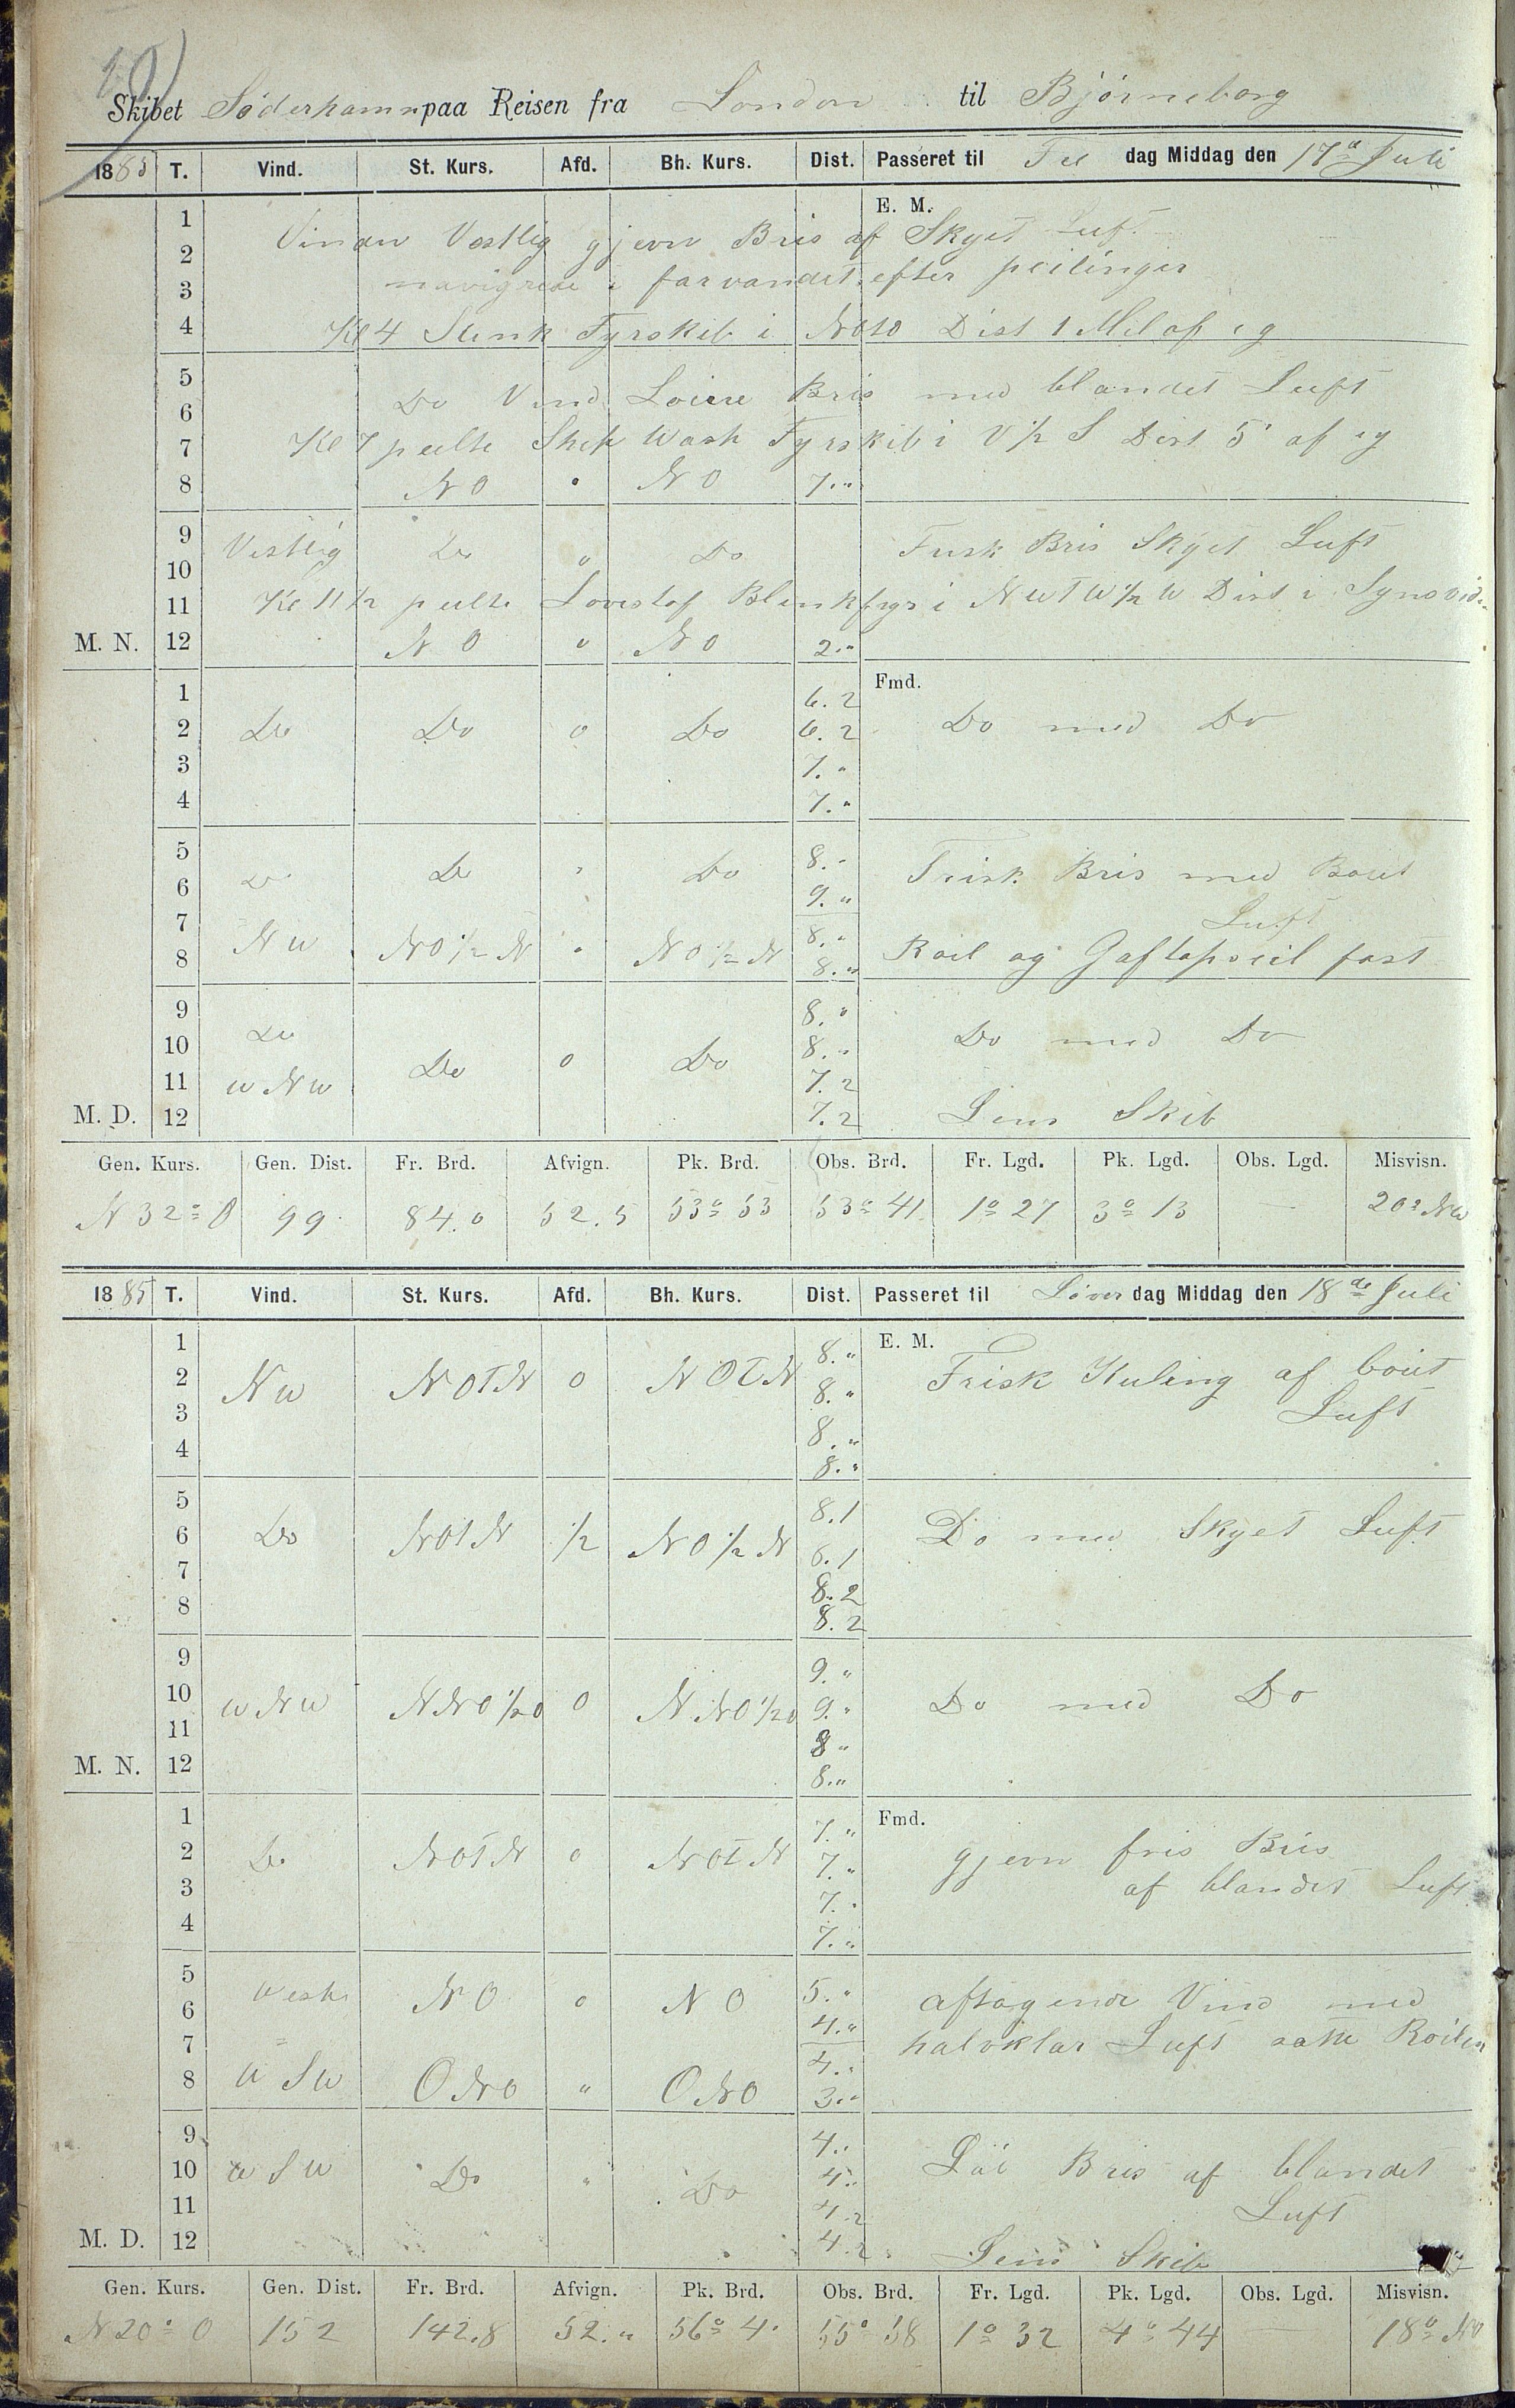 10)
Skibet Söderhamn paa Reisen fra London til Bjørneborg
1885 T. Vind. St. Kurs. Afd. Bh. Kurs. Dist. Passeret til Fre dag Middag den 17d Juli
E. M.
1
Vinden Vestlig gjevn Bris af Skyet Luft
2
navigrede i farvandet efter peilinger
3
4 Kl 4 Sunk Fyrskib i NOtO Dist 1 Mil af og
5
Do Vind Loiere Bris med blandet Luft
6
7 Kl 7 peilte Ship Wash Fyrskib i V ½ S Dist 5' af og
8 NO " NO 7."
9 Vestlig Do " Do Frisk Bris Skyet Luft
10
11 Kl 11½ peilte Lovestof Blinkfyr i NWTW½W Dist i Synsvid
M. N. 12 NO " NO 2."
Fmd.
1 6.2
2 Do Do 0 Do 6.2 Do med Do
3 7."
4 7."
5 Do Do " Do 8." Frisk Bris med Bøiet
6 9." Luft
7 NW NO½N " NO½N 8."
8 8." Roil og Gaftopseil fast
9 Do 8."
10 Do 0 Do 8." Do med Do
11 WNW 7.2
M. D. 12 7.2 Lens Skib
Gen. Kurs. Gen. Dist. Fr. Brd. Afvign. Pk. Brd. Obs. Brd. Fr. Lgd. Pk. Lgd. Obs. Lgd. Misvisn.
N 32° O 99 84.0 52.5 53° 53 53° 41 1° 27 3° 13 — 20° NW
1885 T. Vind. St. Kurs. Afd. Bh. Kurs. Dist. Passeret til Løver dag Middag den 18de Juli
E. M.
1 8."
2 NW NOTN 0 NOTN 8." Frisk Kuling af bøiet
3 8." Luft
4 8."
5 8.1
6 Do NOTN ½ NO½N 8.1 Do med Skyet Luft
7 8.2
8 8.2
9 9."
10 WNW NNO½O 0 NNO½O 9." Do med Do
11 8."
M. N. 12 8."
Fmd.
1 7."
2 Do NOTN 0 NOTN 7." gjevn fris Bris
3 7." af blandet Luft
4 7."
5 5."
6 West NO 0 NO 4." aftagende Vind med
7 4." halvklar Luft satte Roilen
8 WSW ONO " ONO 3."
9 4."
10 WSW Do " Do 4." Løi Bris af blandet
11 4.2 Luft
M. D. 12 4.2 Lens Skib
Gen. Kurs. Gen. Dist. Fr. Brd. Afvign. Pk. Brd. Obs. Brd. Fr. Lgd. Pk. Lgd. Obs. Lgd. Misvisn.
N 20° O 152 142.8 52." 56° 4' 55° 58 1° 32 4° 44 — 18° NW